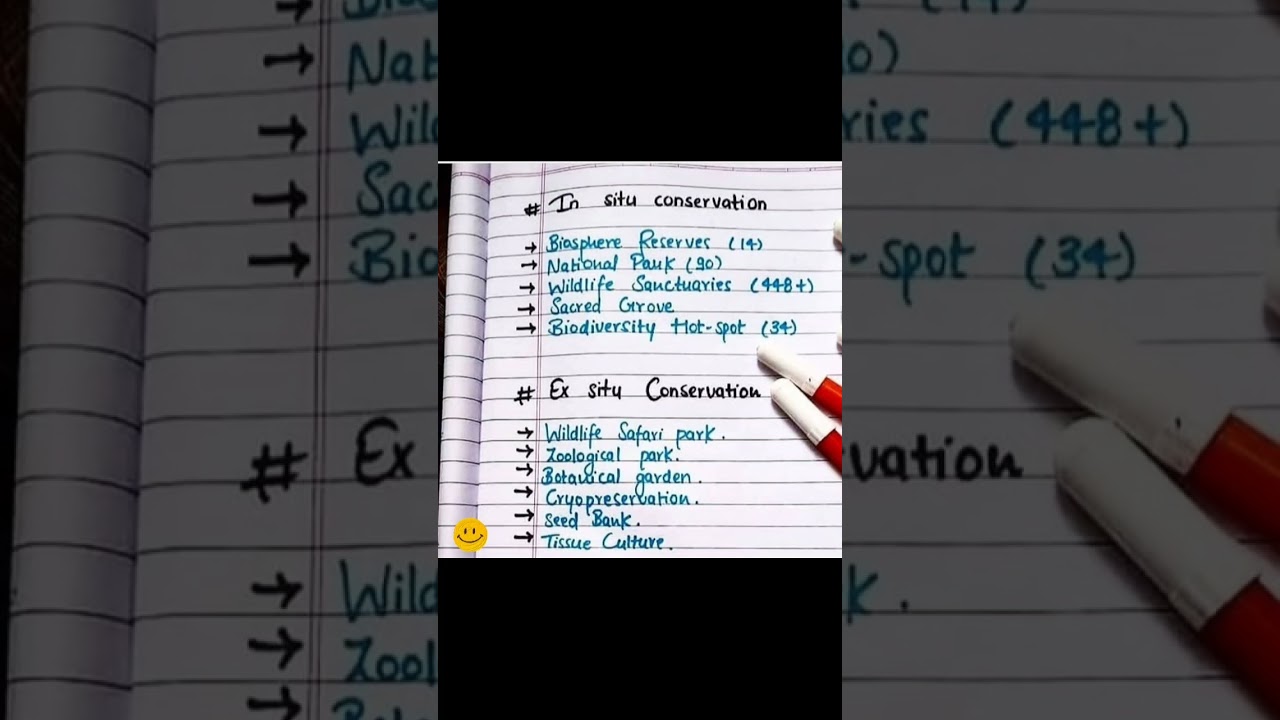 # In situ conservation
→ Biosphere Reserves (14)
→ National Park (90)
→ Wildlife Sanctuaries (448+)
→ Sacred Grove
→ Biodiversity Hot-spot (34)
# Ex situ Conservation
→ Wildlife Safari park.
→ Zoological park.
→ Botanical garden.
→ Cryopreservation.
→ Seed Bank.
→ Tissue Culture.